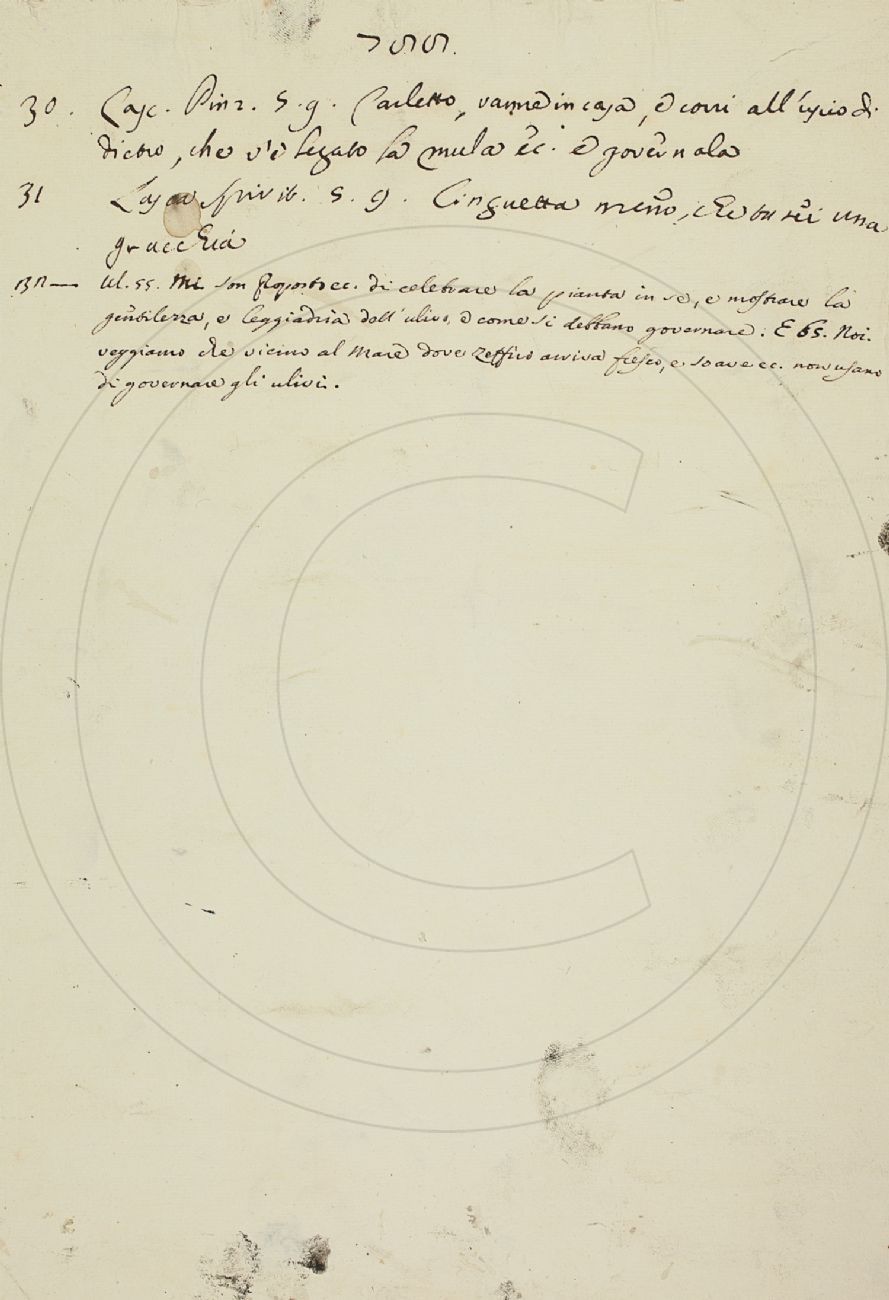 755.
30. Lasc. Pinz. 5. 9. Carletto, vanne in casa, e corri all'uscio di
dietro, che v'è legato la mula ec. e governala
31 Lasca Spirit. 5. 9. Cinguetta meno, che tu sei una
gracchia
Ul. 55. Mi son proposto ec. di celebrare la pianta in se, e mostrare la
gentilezza, e leggiadria dell'ulivo, e come si debbano governare. E 65. Noi
veggiamo che vicino al mare dove zeffiro arriva fresco, e soave ec. non usano
di governare gli ulivi.